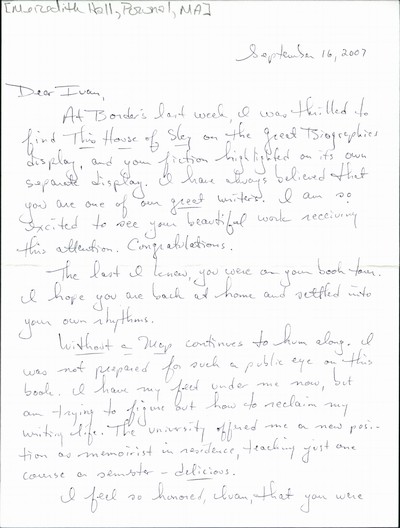 [Meredith Hall, Pownal, MA]
September 16, 2007
Dear Ivan,
At Border's last week, I was thrilled to
find This House of Sky on the Great Biographies
display, and your fiction highlighted on its own
separate display. I have always believed that
you are one of our great writers. I am so
excited to see your beautiful work receiving
this attention. Congratulations.
The last I knew, you were on your book tour.
I hope you are back at home and settled into
your own rhythms.
Without a Map continues to hum along. I
was not prepared for such a public eye on this
book. I have my feet under me now, but
am trying to figure out how to reclaim my
writing life. The university offered me a new posi-
tion as memoirist in residence, teaching just one
course a semester - delicious.
I feel so honored, Ivan, that you were